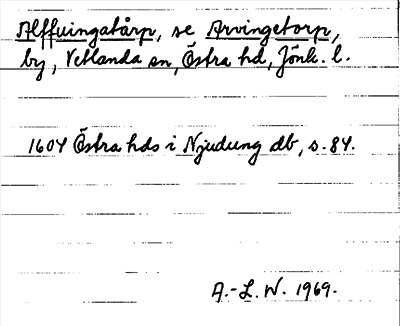 Alffuingatårp, se Arvingetorp,
by, Vetlanda sn, Östra hd, Jönk. l.
1604 Östra hds i Njudung db, s. 84.
A.-L. W. 1969.